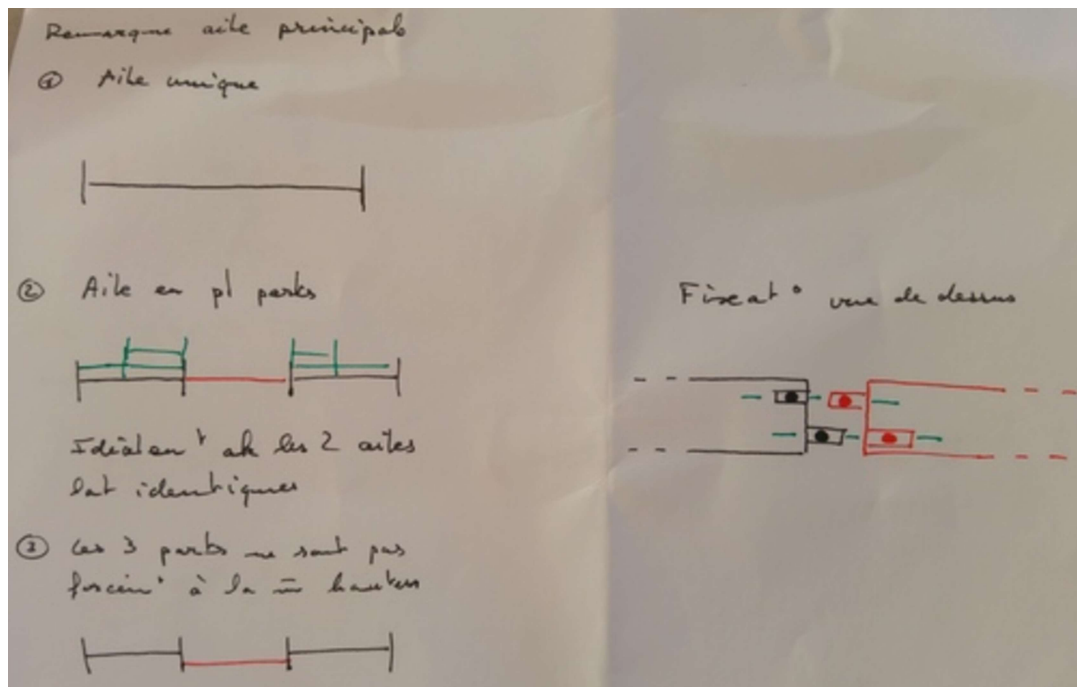 Remarque aile principale
① Aile unique
② Aile en pl parts
Idéalem^t les 2 ailes
lat identiques
③ Les 3 parts ne sont pas
forcém^t à la m̄ hauteur
Fixat° vue de dessus